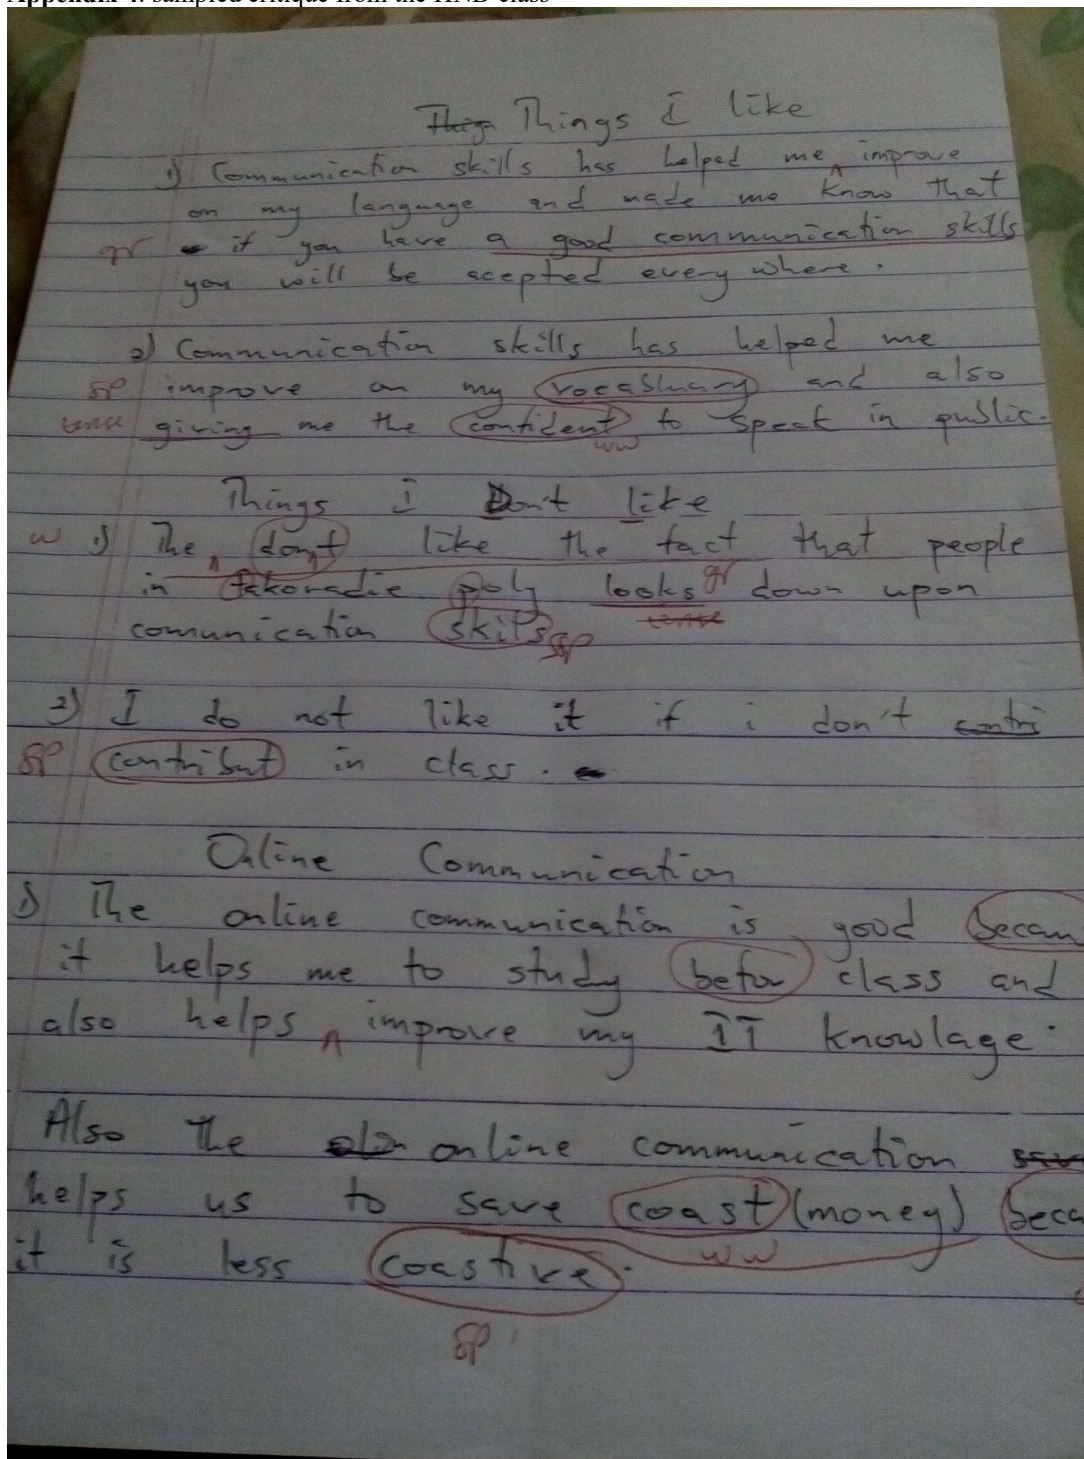 Appendix 4: sampled critique from the HND class
Thign Things I like
1) Communication skills has helped me improve
on my language and made me know that
gr if you have a good communication skills
you will be acepted every where.
2) Communication skills has helped me
sp improve on my vocabluary and also
tense giving me the confident to speak in public.
ww
Things I Don't like
w 1) The don't like the fact that people
in takoradie poly looks gr down upon
tense
comunication skils sp
2) I do not like it if i don't contri
sp contribut in class.
Online Communication
1) The online communication is good becau
it helps me to study befor class and
also helps improve my IT knowlage.
Also the online communication
helps us to save coast (money) beca
ww
it is less coastive.
sp